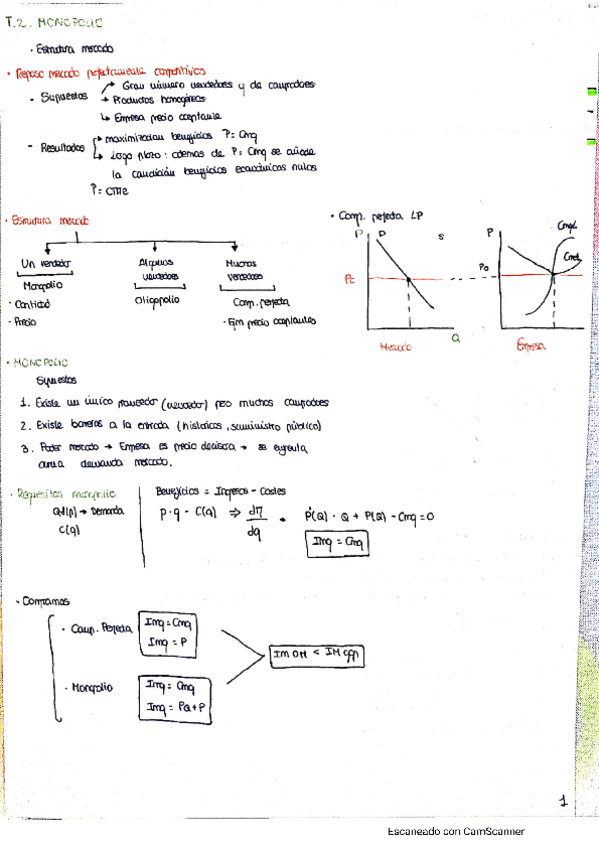 T.2. MONOPOLIO
· Estructura mercado
· Repaso mercado perfectamente competitivos
- Supuestos → Gran número vendedores y de compradores
→ Productos homogéneos
↳ Empresa precio aceptante
- Resultados → maximización beneficios P = Cmg
↳ Largo plazo: además de P = Cmg se añade
la condición beneficios económicos nulos
P = CTMe
· Estructura mercado
Un vendedor
Monopolio
· Cantidad
· Precio
Algunos vendedores
Oligopolio
Muchos vendedores
Comp. perfecta
· Em precio aceptantes
· Comp. perfecta LP
P D S
Pc
Q
Mercado
P CmgL
CmeL
Po
Empresa
· MONOPOLIO
Supuestos
1. Existe un único proveedor (vendedor) pero muchos compradores
2. Existe barreras a la entrada (históricas, suministro público)
3. Poder mercado → Empresa es precio decisora → se enfrenta
curva demanda mercado.
· Requisitos monopolio
Qd(p) → Demanda
C(q)
Beneficios = Ingresos - Costes
p · q - C(q) ⇒ dπ/dq = P'(Q) · Q + P(Q) - Cmg = 0
Img = Cmg
· Comparamos
· Comp. Perfecta
Img = Cmg
Img = P
· Monopolio
Img = Cmg
Img = PQ + P
1
Escaneado con CamScanner